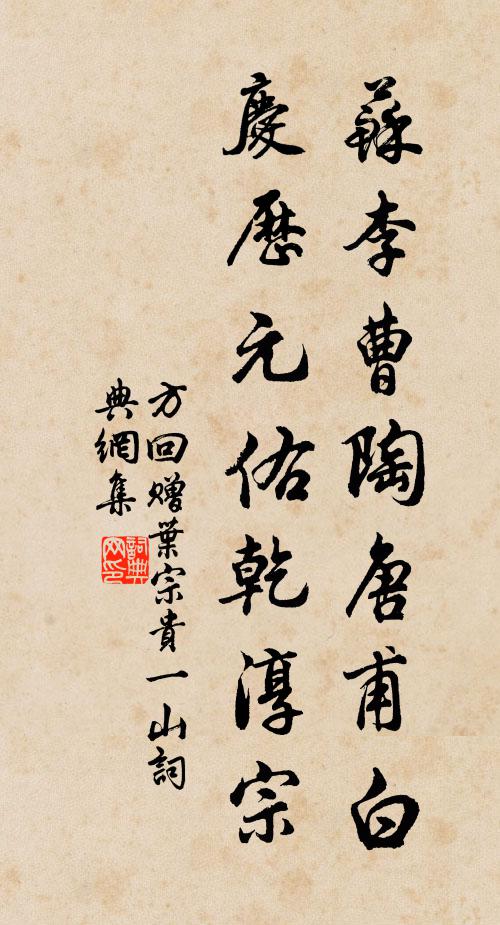 蘇李曹陶唐甫白
慶歷元佑乾淳宗
方回贈葉宗貴一山詞
典網集
詞典網印